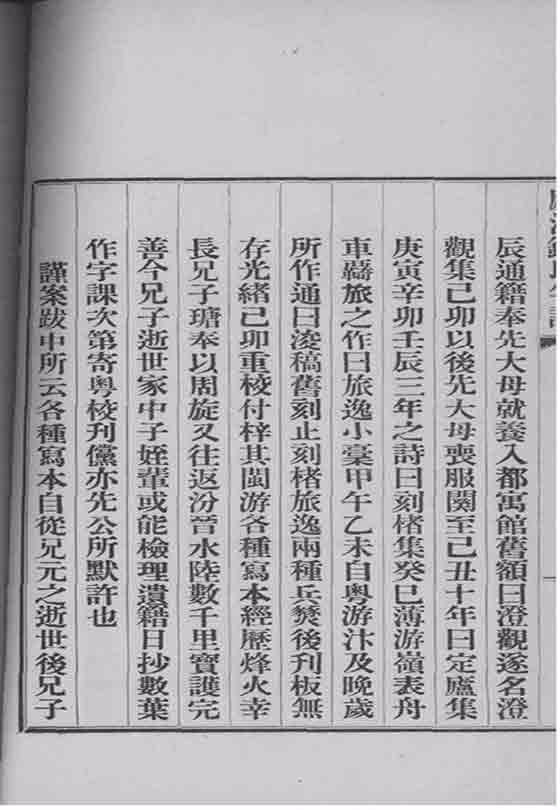 辰通籍奉先大母就養入都寓館舊額曰澄觀遂名澄
觀集己卯以後先大母喪服闋至己丑十年曰定廬集
庚寅辛卯壬辰三年之詩曰刻楮集癸巳薄游嶺表舟
車羇旅之作曰旅逸小稾甲午乙未自粵游汴及晚歲
所作通曰浚稿舊刻止刻楮旅逸兩種兵燹後刋板無
存光緒己卯重校付梓其閩游各種寫本經歷烽火幸
長兄子瑭奉以周旋又往返汾晉水陸數千里寶護完
善今兄子逝世家中子姪輩或能檢理遺籍日抄數葉
作字課次第寄粵校刊儻亦先公所默許也
謹案跋中所云各種寫本自從兄元之逝世後兄子